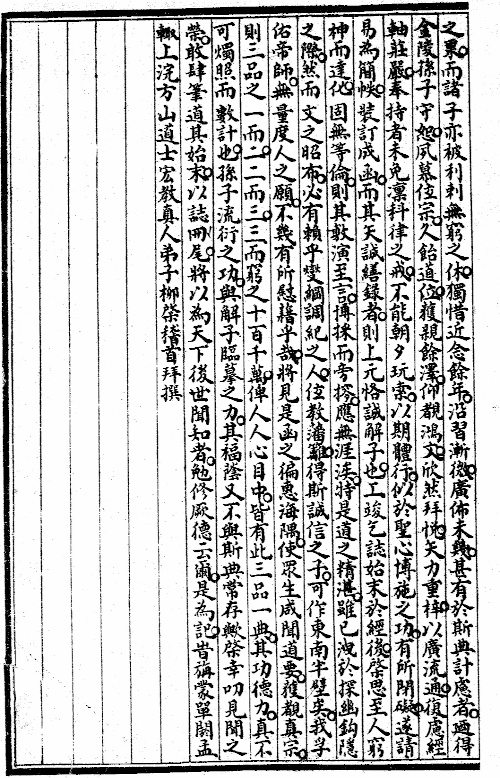 之眾而諸子亦被利利無窮之休獨惜近念餘年沿習漸微廣佈未甚有於斯典計慮者迺得
金陵孫子守恕夙慕位宗久飴道位獲親餘澤仰觀鴻文欣然拜悅矢力重梓以廣流通復慮經
軸莊嚴奉持者未免凜科律之戒不能朝夕玩索以期體行似於聖心博施之功有所閉礙遂請
易為簡帙裝訂成函而其矢誠繕錄者則上元恪誠解子也工竣乞誌始末於經後榮思至人窮
神而達化固無等倫則其敷演至言博採而旁搜應無涯涘特是道之精湛雖已洩於探幽鈎隱
之際然而文之昭布必有賴乎燮綱調紀之人位教藩籬得斯誠信之子可作東南半壁矣我孚
佑帝師無量度人之願不幾有所慰藉乎哉將見是函之徧惠海隅使眾生咸聞道要獲觀真宗
則三品之一而二二而三三而窮之十百千萬俾人人心目中皆有此三品一典其功德力真不
可燭照而數計也孫子流衍之功與解子臨摹之力其福蔭又不與斯典常存歟榮幸叨見聞之
榮敢肆筆道其始末以誌冊尾將以為天下後世聞如者勉修厥德云爾是為記旹旃蒙單閼孟
輙上浣方山道士宏教真人弟子柳榮稽首拜撰